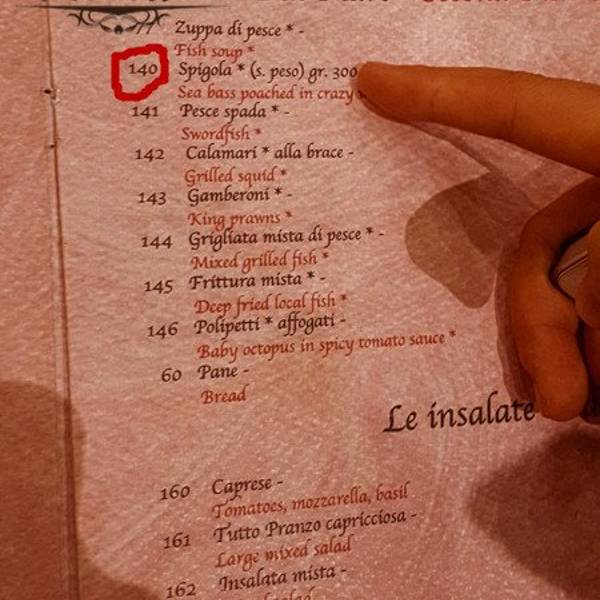 Zuppa di pesce * -
Fish soup *
140 Spigola * (s. peso) gr. 300
Sea bass poached in crazy
141 Pesce spada * -
Swordfish *
142 Calamari * alla brace -
Grilled squid *
143 Gamberoni * -
King prawns *
144 Grigliata mista di pesce * -
Mixed grilled fish *
145 Frittura mista * -
Deep fried local fish *
146 Polipetti * affogati -
Baby octopus in spicy tomato sauce *
60 Pane -
Bread
Le insalate
160 Caprese -
Tomatoes, mozzarella, basil
161 Tutto Pranzo capricciosa -
Large mixed salad
162 Insalata mista -
salad